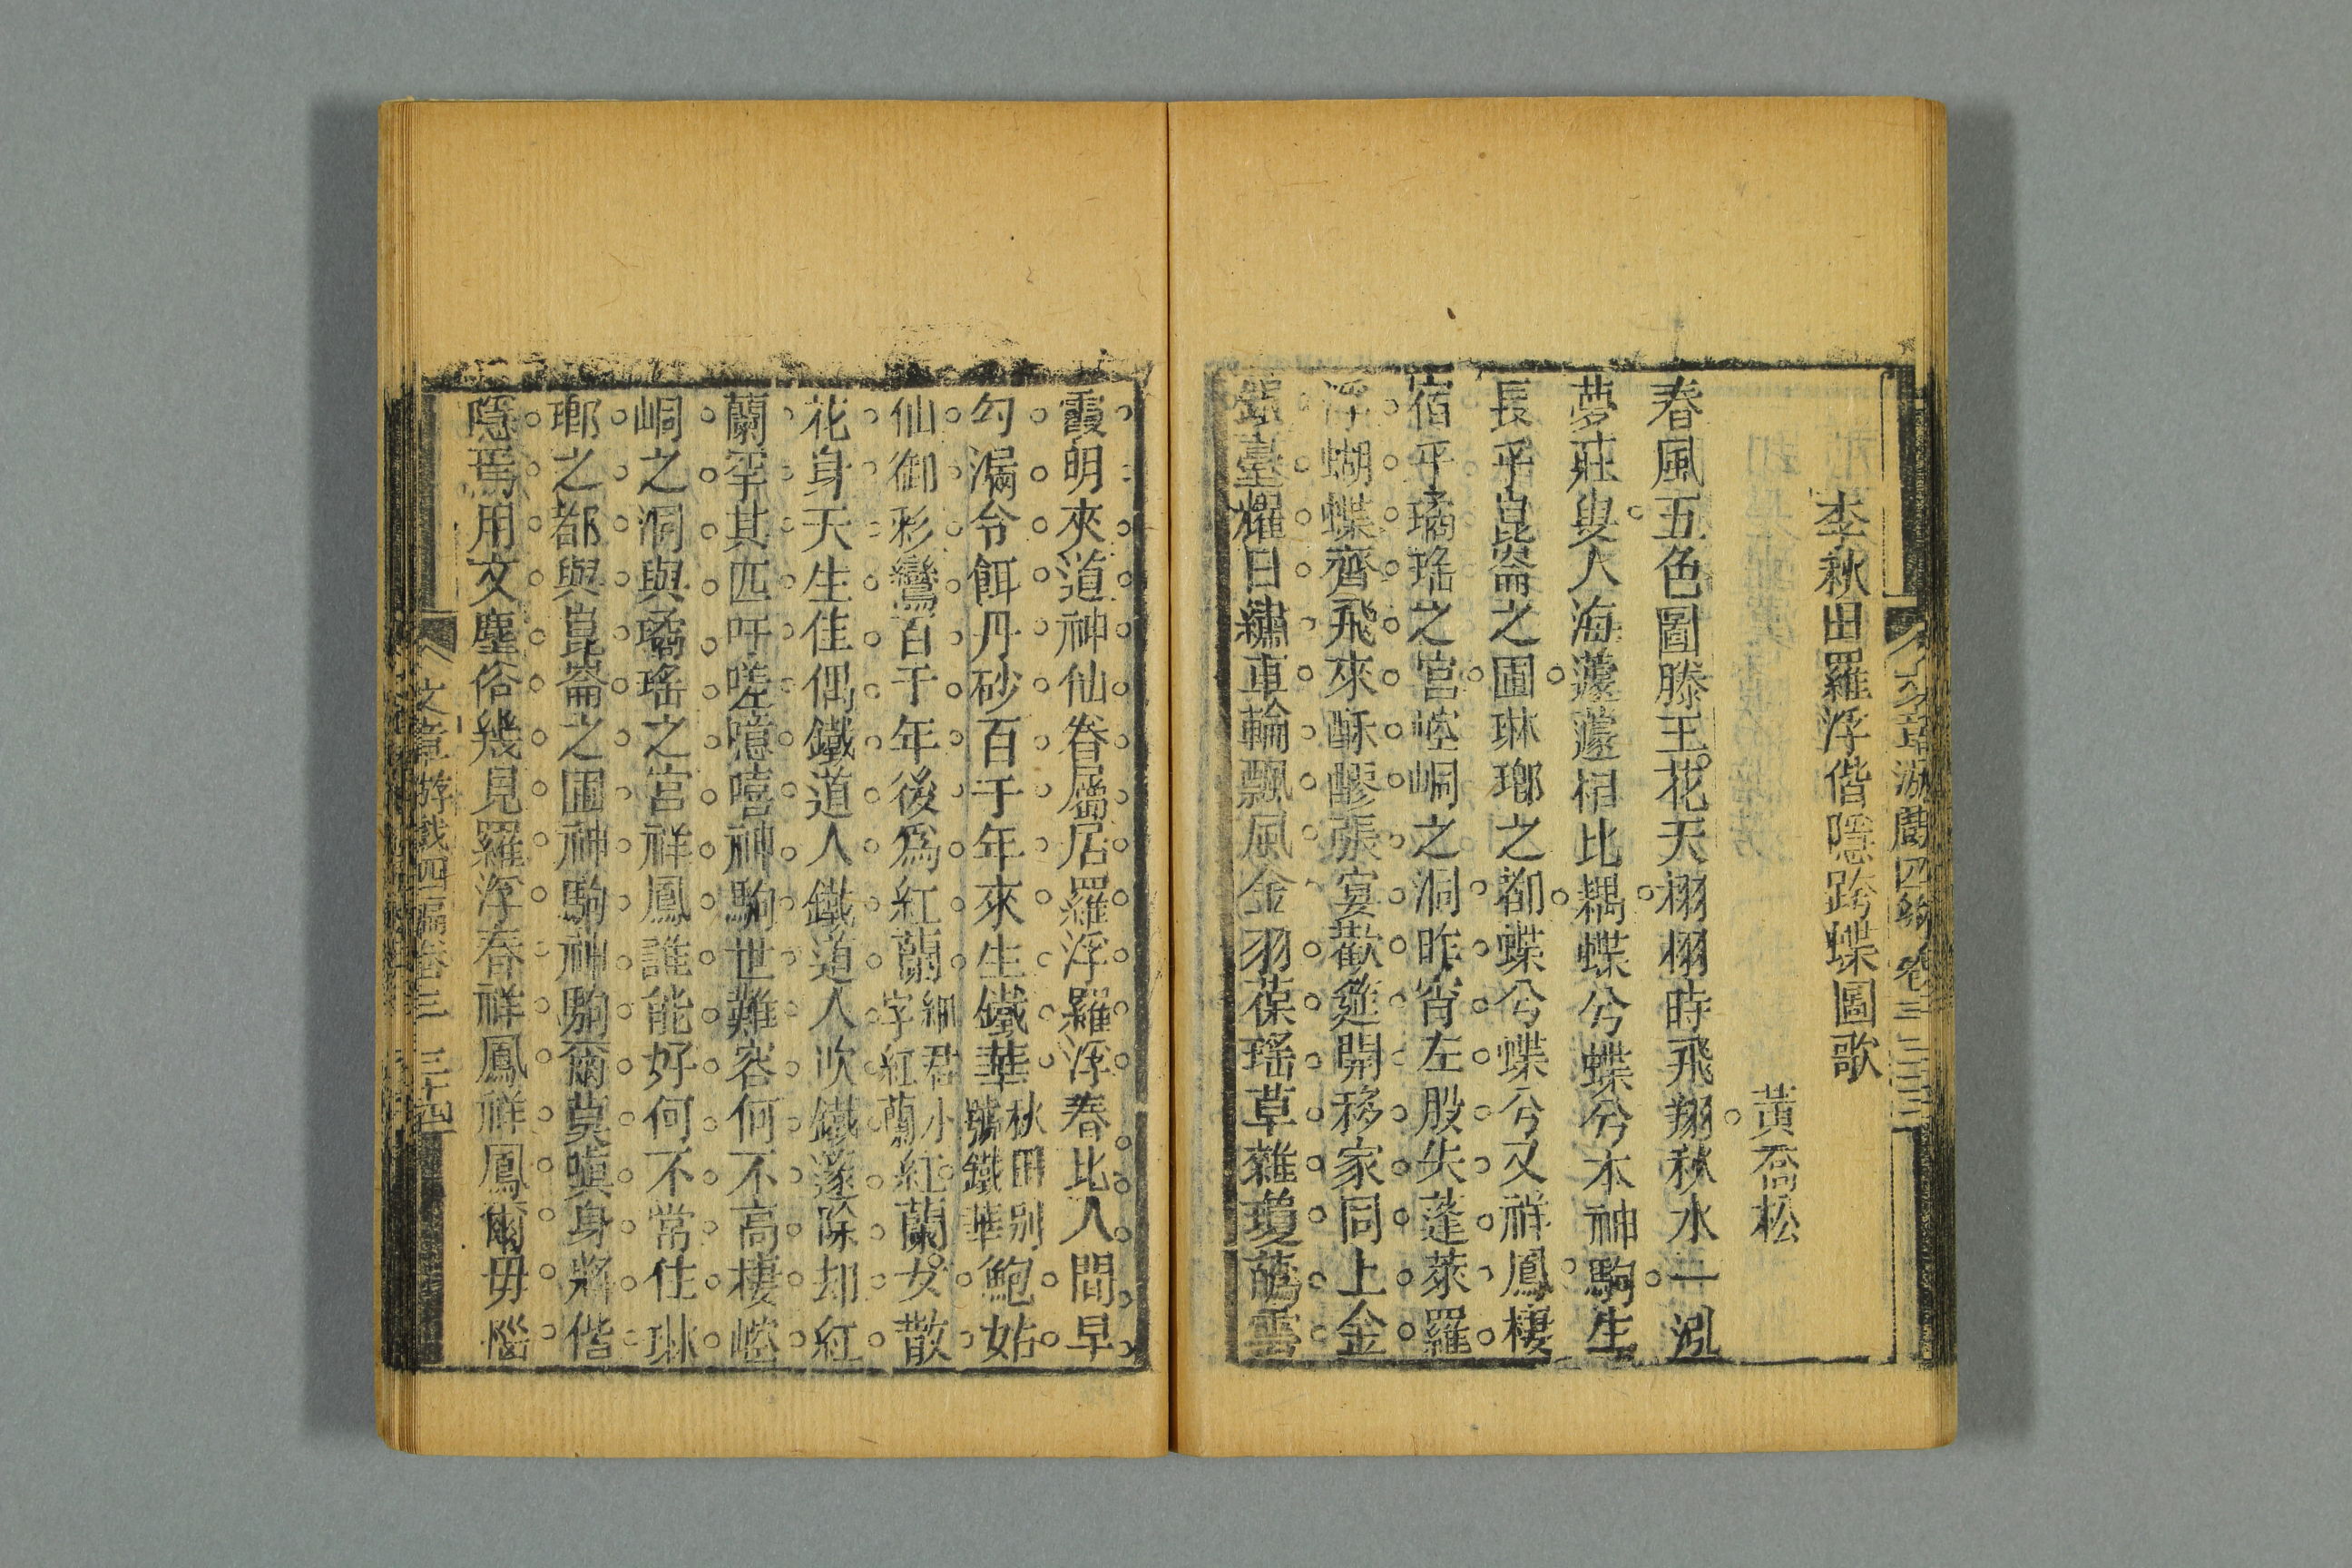 文章游戲四編卷三 三三
李秋田羅浮偕隱跨蝶圖歌
黃喬松
春風五色圖滕王。花天栩栩時飛翔。秋水一泓
夢莊叟。人海蘧蘧相比耦。蝶兮蝶兮本神駒。生
長乎崑崙之圃。琳瑯之都。蝶兮蝶兮又祥鳳。棲
宿乎璚瑤之宮。崆峒之洞。昨宵左股失蓬萊。羅
浮蝴蝶齊飛來。酥醪張宴歡筵開。移家同上金
銀臺。耀日繡車輪。飄風金羽葆。瑤草雜瓊葩。雲
霞明夾道。神仙眷屬居羅浮。羅浮春比人間早。
勾漏令。餌丹砂。百千年來生鐵華。秋田别號鐵華鮑姑
仙。御彩鸞。百千年後爲紅蘭。細君小字紅蘭紅蘭。女散
花。身天生佳偶鐵道人。鐵道人。吹鐵篴。除却紅
蘭罕其匹。吁嗟噫嘻。神駒世難容。何不高棲崆
峒之洞與璚瑤之宮。祥鳳誰能好。何不常住琳
瑯之都與崑崙之圃。神駒神駒爾莫嗔。身將偕
隱焉用文。塵俗幾見羅浮春。祥鳳祥鳳爾毋惱
文章游戲四編卷三 三十四